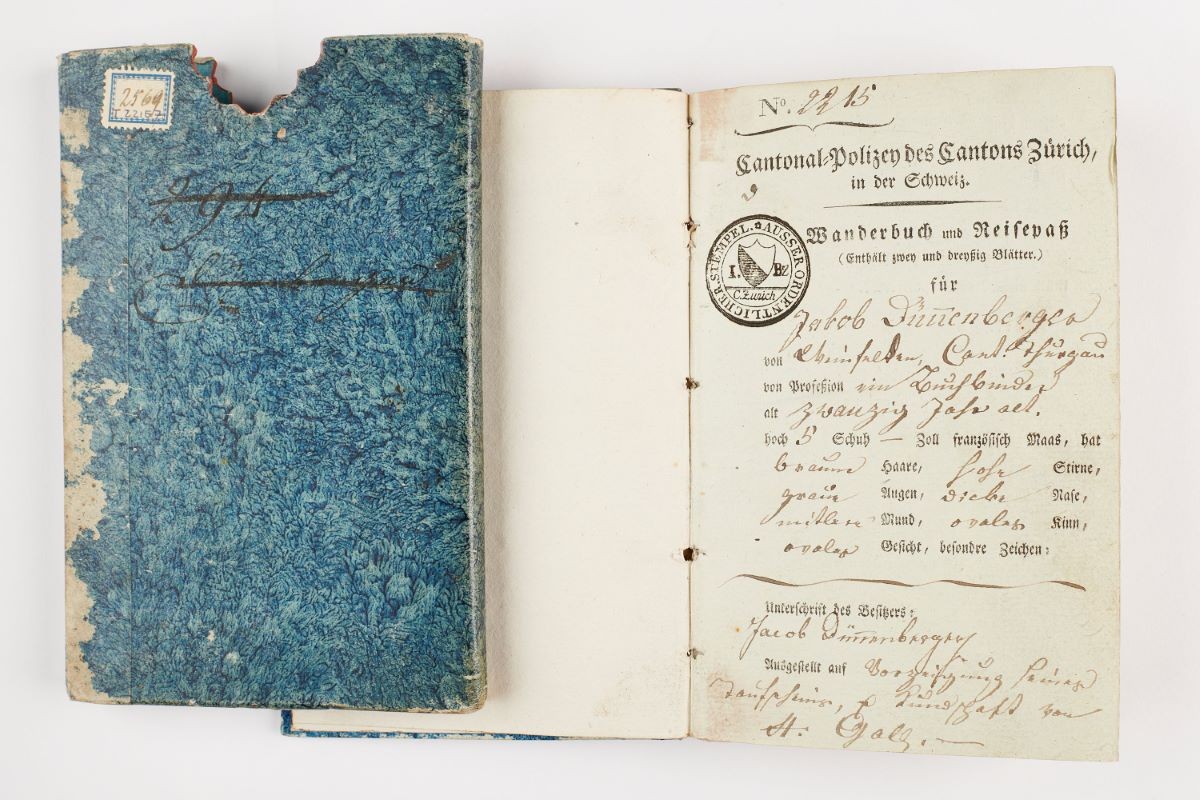 2569
I.22157
No. 2215
Cantonal-Polizey des Cantons Zürich,
in der Schweiz.
AUSSERORDENTLICHER STEMPEL.
1. Bz
C. Zürich
Wanderbuch und Reisepaß
(Enthält zwey und dreyßig Blätter.)
für
Jakob Dünnenberger
von Weinfelden, Cant: Thurgau
von Profeßion ein Buchbinder
alt zwanzig Jahr alt.
hoch 5 Schuh — Zoll französisch Maas, hat
braune Haare, hohe Stirne,
graue Augen, dicke Nase,
mitlere Mund, ovales Kinn,
ovales Gesicht, besondre Zeichen:
Unterschrift des Besitzers:
Jacob Dünnenberger
Ausgestellt auf Vorzeigung seines
Taufscheins, & Kundschaft von
St. Gall. —